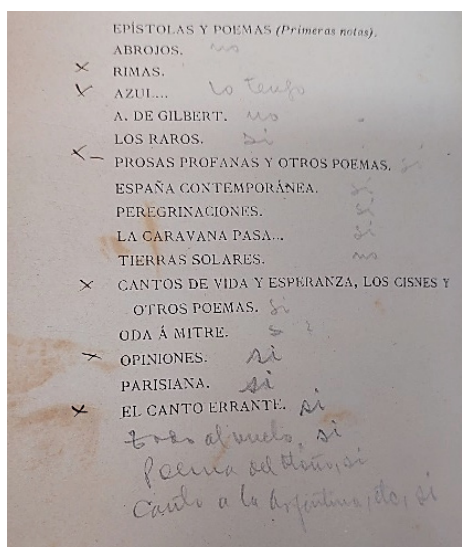 EPÍSTOLAS Y POEMAS (Primeras notas).
ABROJOS. no
× RIMAS.
× AZUL... Lo tengo
A. DE GILBERT. no
LOS RAROS. si
×– PROSAS PROFANAS Y OTROS POEMAS. si
ESPAÑA CONTEMPORÁNEA. si
PEREGRINACIONES. si
LA CARAVANA PASA... si
TIERRAS SOLARES. no
× CANTOS DE VIDA Y ESPERANZA, LOS CISNES Y
OTROS POEMAS. si
ODA Á MITRE. si
× OPINIONES. si
PARISIANA. si
× EL CANTO ERRANTE. si
Todo al vuelo, si
Poema del Otoño, si
Canto a la Argentina, etc, si